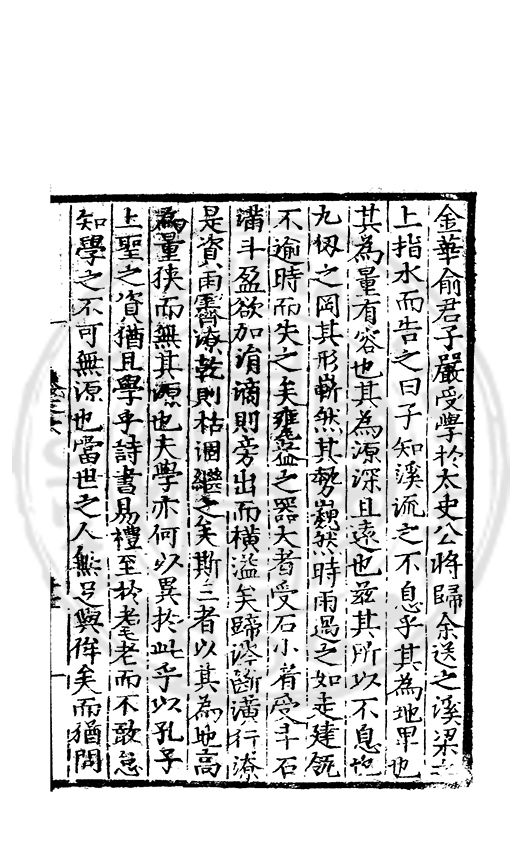 金華俞君子嚴受學於太史公將歸余送之溪梁之
上指水而告之曰子知溪流之不息乎其為地卑也
其為量有容也其為源深且遠也茲其所以不息也
九仞之岡其形嶄然其勢巍然時雨過之如走建瓴
不逾時而失之矣甕盎之器大者受石小者受斗石
滿斗盈欲加涓滴則旁出而橫溢矣蹄涔斷潢行潦
是資雨霽潦乾則枯涸繼之矣斯三者以其為地高
為量狹而無其源也夫學亦何以異於此乎以孔子
上聖之資猶且學乎詩書易禮至於耄老而不敢怠
知學之不可無源也當世之人無足與侔矣而猶問